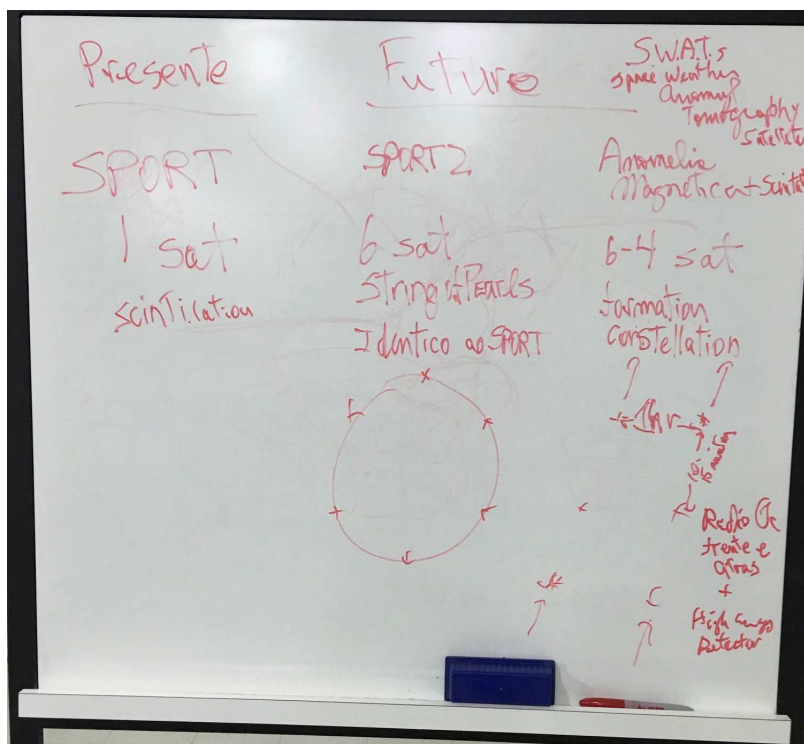 Presente
SPORT
1 sat
scintilation
Futuro
SPORT2
6 sat
String of Pearls
Identico ao SPORT
S.W.A.T.s
Space Weather
Anomaly
Tomography
Satellite
Anomelia
Magnetica + Scintil
6-4 sat
formation
constellation
10 minutes
Radio Oc
frente e
atras
+
High Energy
Detector